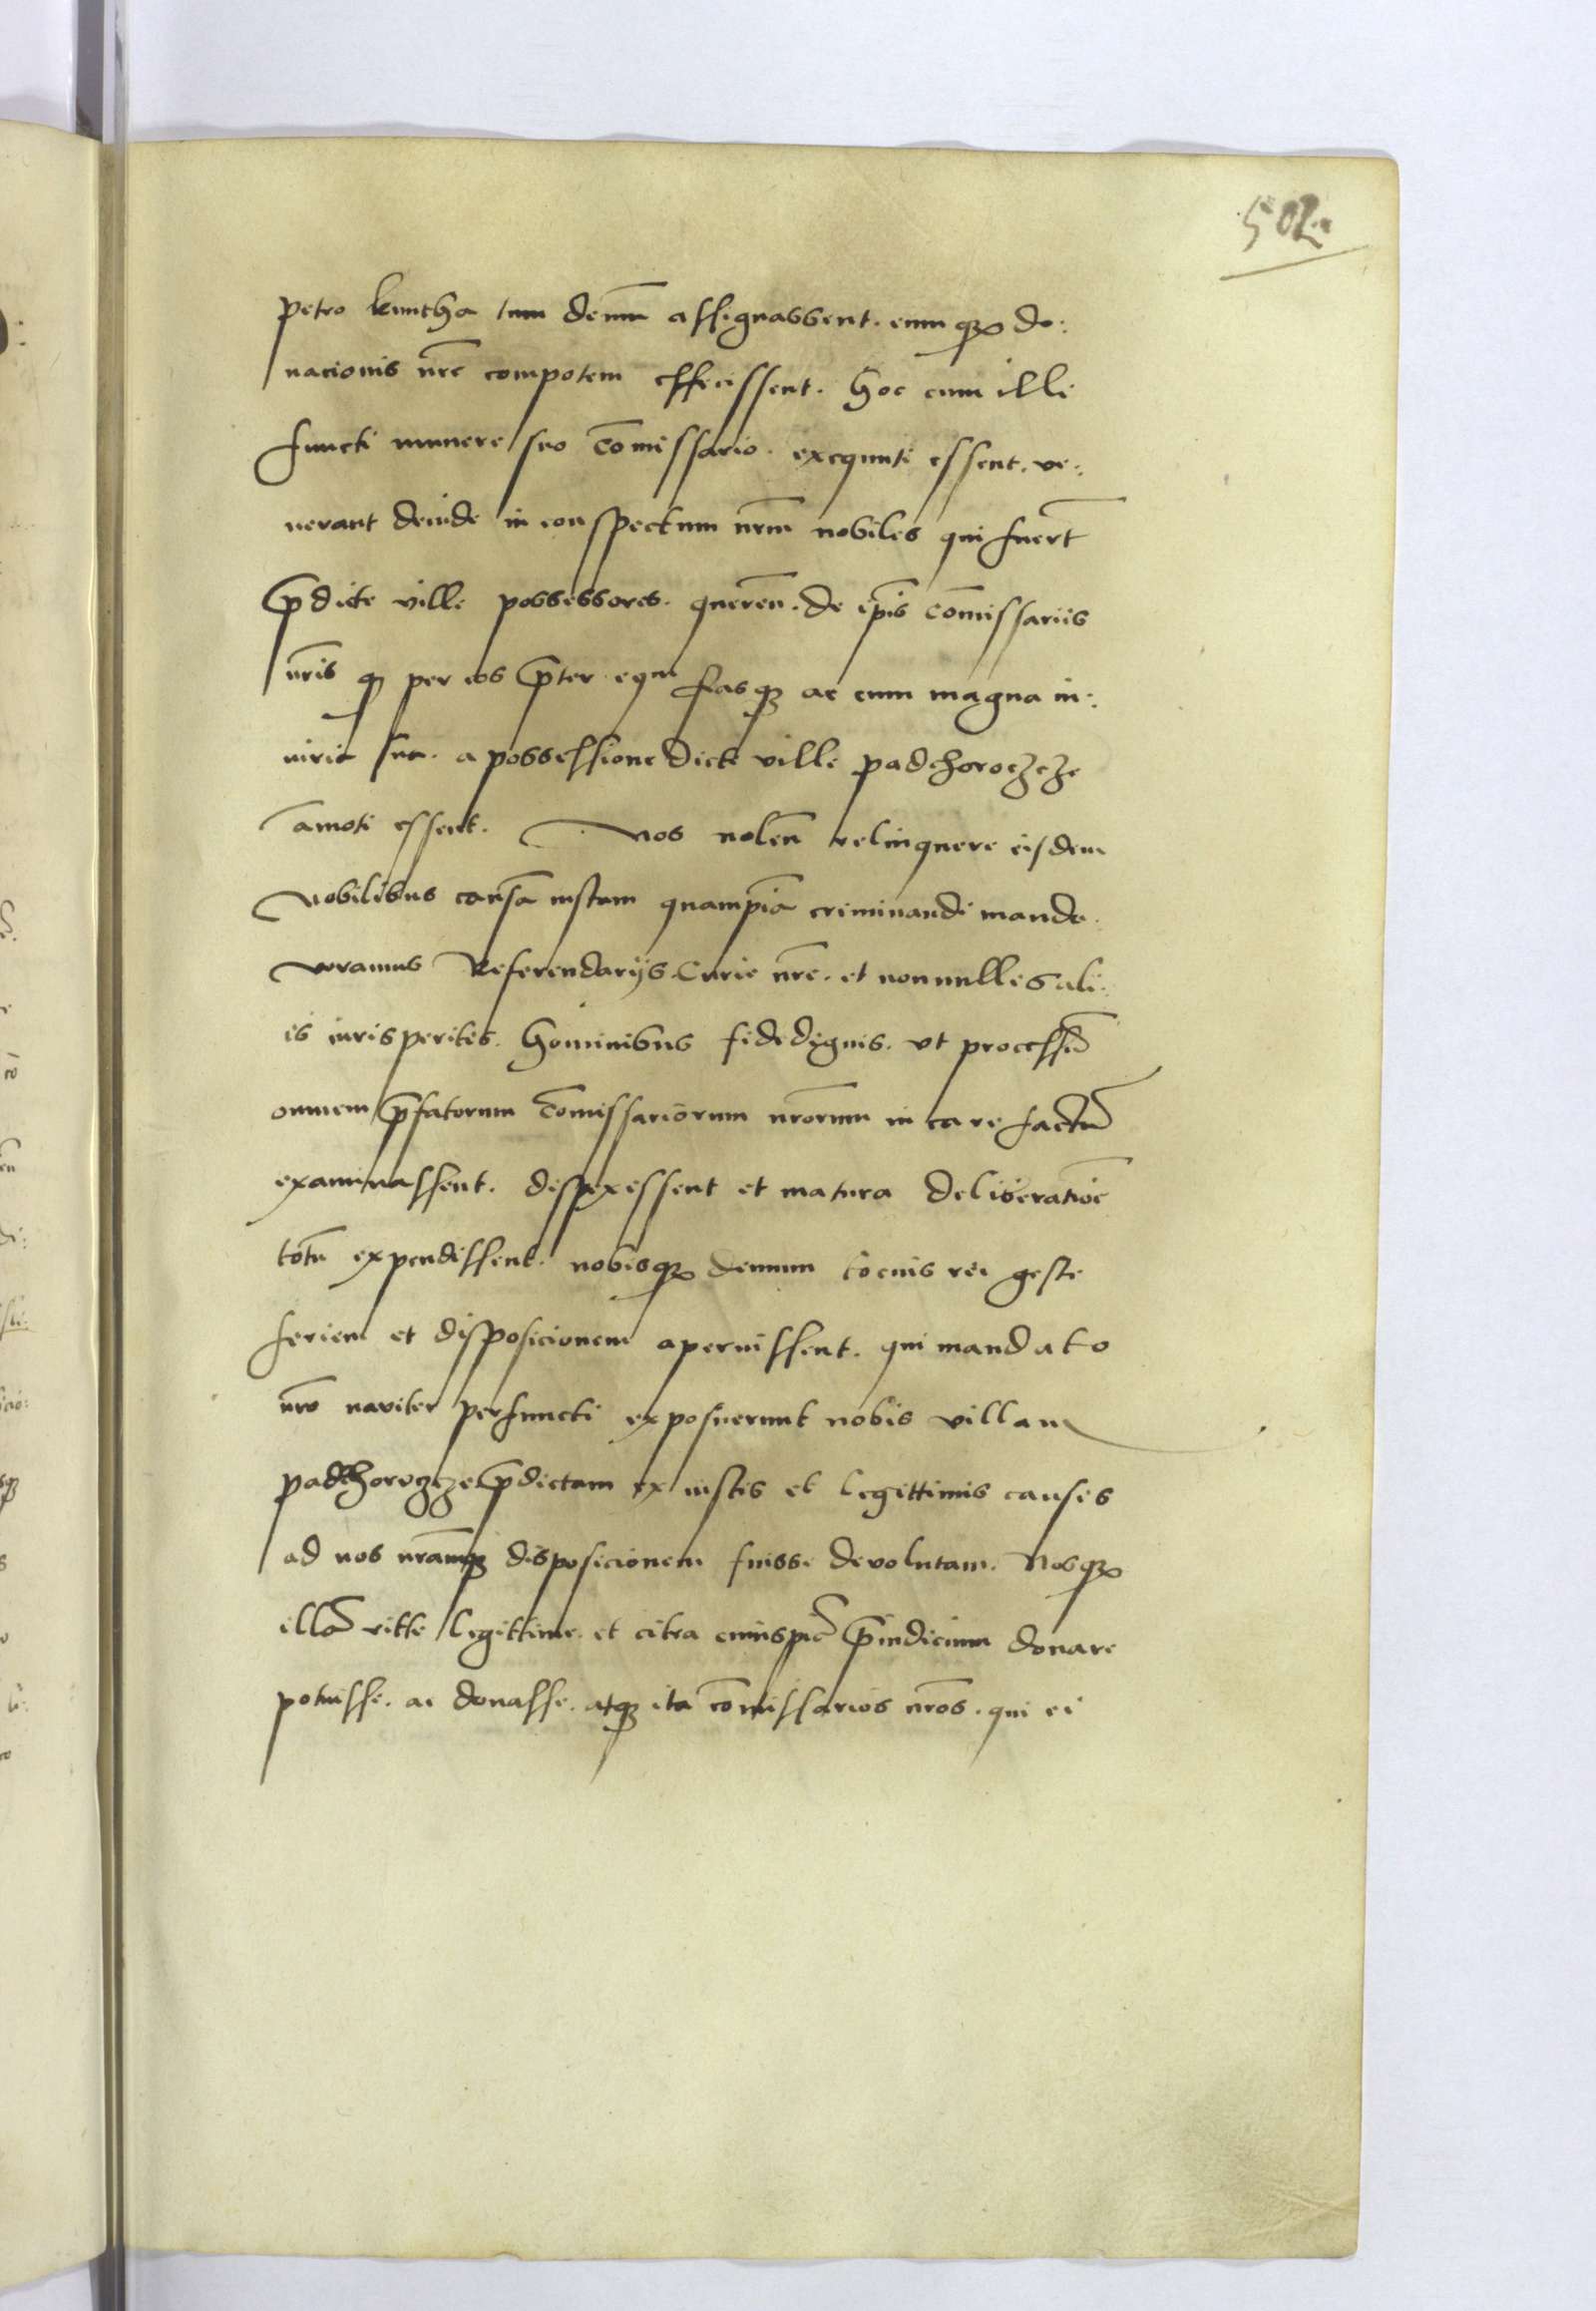 502
petro kuntha tum demū assignassent. eum qȝ do:
nacionis nr̄e compotem effecissent. hoc cum illi
functi munere suo com̄issario. exequuti essent. ve:
nerant deinde in conspectum nr̄m nobiles qui fuert̄
p̄dicte ville possessores. queren̄. de ip̄is com̄issariis
nr̄is q̄ per eos p̄ter equm fasqȝ ac cum magna in:
iuria sua. a possessione dicte ville padchoroczcze
amoti essent. Nos nolen̄ relinquere eisdem
Nobilibus causā iustam quampiā criminandi manda:
veramus Referendariis Curie nr̄e. et nonnullis ali:
is iurisperitis. hominibus fidedignis. vt processū
omnem p̄fatorum com̄issariorum nr̄orum in ea re factū
examinassent. dispexissent et matura deliberatiōe
totū expendissent. nobisqȝ demum tocius rei geste
seriem et disposicionem aperuissent. qui mandato
nr̄o naviter perfuncti exposuerunt nobis villam
padchoroczcze p̄dictam ex iustis et legittimis causis
ad nos nr̄amqȝ disposicionem fuisse devolutam. Nosqȝ
illā ritte legittime. et citra cuiuspiā p̄iudicium donare
potuisse. ac donasse. atqȝ ita com̄issarios nr̄os. qui ei